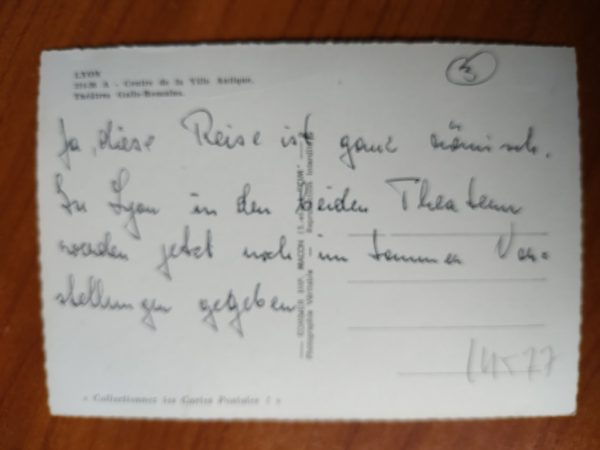 LYON
Centre de la Ville Antique.
Théâtres Gallo-Romains.
3
Ja, diese Reise ist ganz römisch.
In Lyon in den beiden Theatern
werden jetzt noch im Sommer Vor-
stellungen gegeben
COMBIER IMP. MACON
Photographie Véritable - Reproduction Interdite
« Collectionnez les Cartes Postales ! »
14577